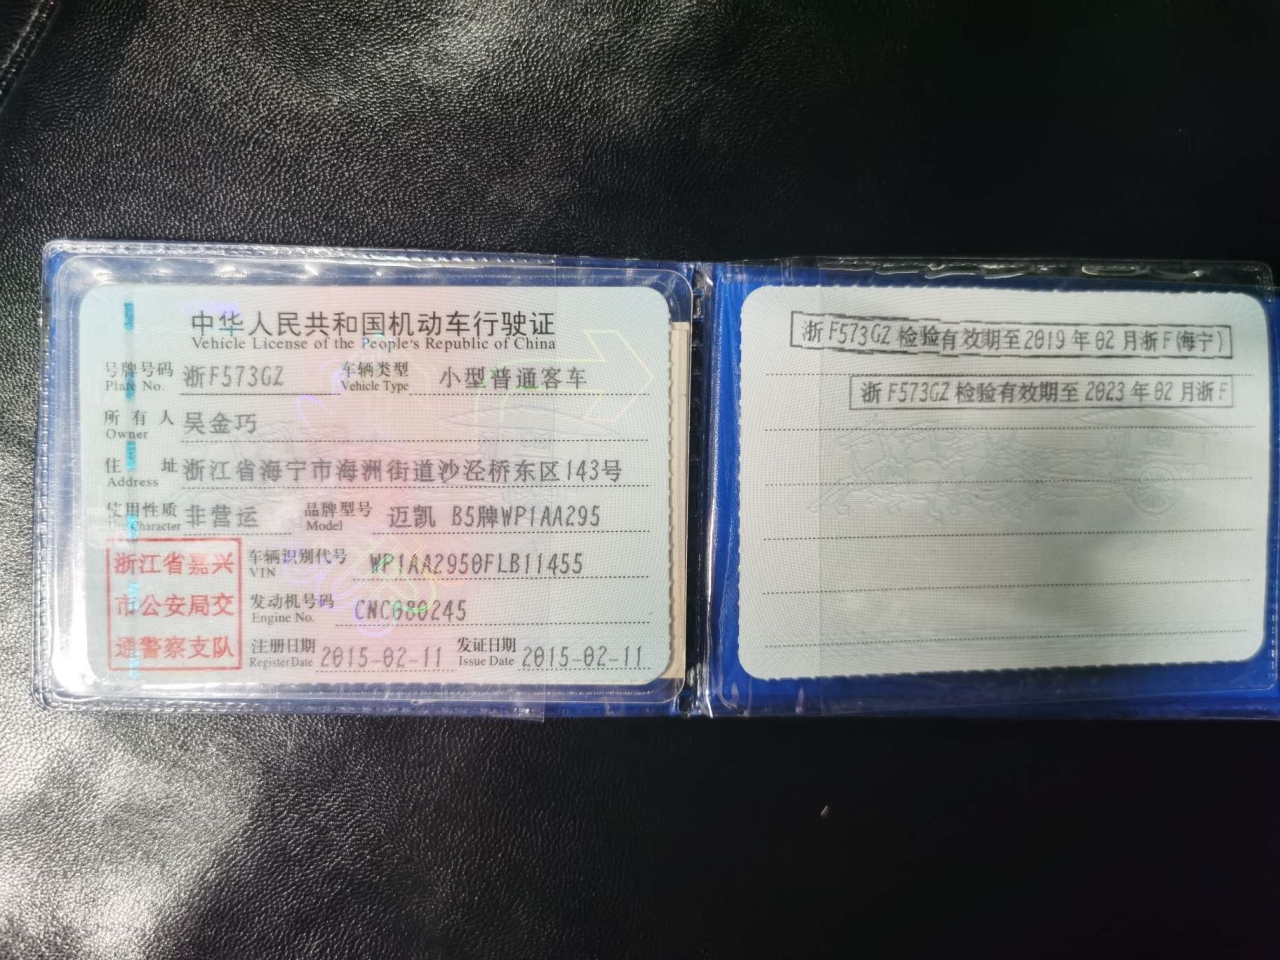 中华人民共和国机动车行驶证
Vehicle License of the People's Republic of China
号牌号码 浙F573GZ 车辆类型 小型普通客车
Plate No. Vehicle Type
所有人 吴金巧
Owner
住址 浙江省海宁市海洲街道沙泾桥东区143号
Address
使用性质 非营运 品牌型号 迈凯 B5牌WP1AA295
Use Character Model
浙江省嘉兴
市公安局交
通警察支队
车辆识别代号 WP1AA2950FLB11455
VIN
发动机号码 CNC080245
Engine No.
注册日期 2015-02-11 发证日期 2015-02-11
Register Date Issue Date
浙F573GZ 检验有效期至2019年02月浙F(海宁)
浙F573GZ 检验有效期至2023年02月浙F